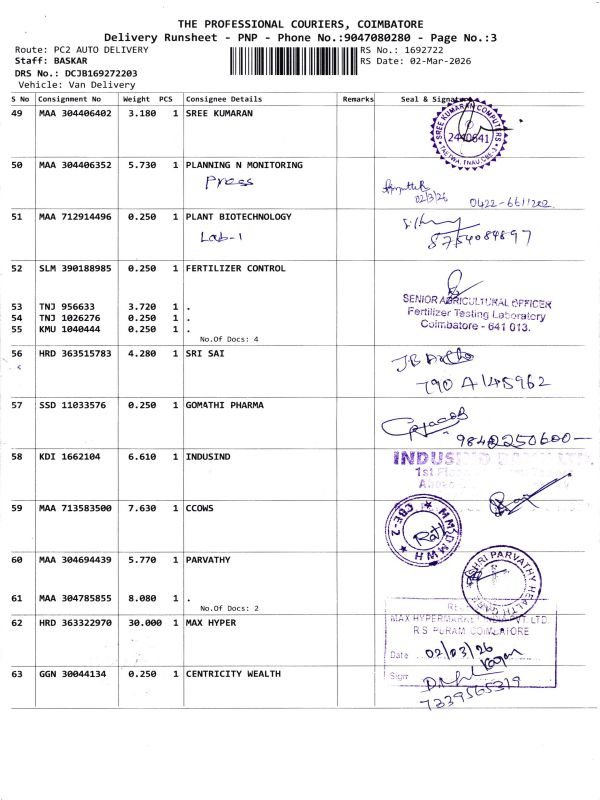 THE PROFESSIONAL COURIERS, COIMBATORE
Delivery Runsheet - PNP - Phone No.:9047080280 - Page No.:3
Route: PC2 AUTO DELIVERY RS No.: 1692722
Staff: BASKAR RS Date: 02-Mar-2026
DRS No.: DCJB169272203
Vehicle: Van Delivery
S No Consignment No Weight PCS Consignee Details Remarks Seal & Signature
49 MAA 304406402 3.180 1 SREE KUMARAN
SREE KUMARAN COMPUTERS
2440641
50 MAA 304406352 5.730 1 PLANNING N MONITORING
Press
02/3/26 0422-6611202
51 MAA 712914496 0.250 1 PLANT BIOTECHNOLOGY
Lab-1
8754084897
52 SLM 390188985 0.250 1 FERTILIZER CONTROL
SENIOR AGRICULTURAL OFFICER
Fertilizer Testing Laboratory
Coimbatore - 641 013.
53 TNJ 956633 3.720 1 .
54 TNJ 1026276 0.250 1 .
55 KMU 1040444 0.250 1 .
No.Of Docs: 4
56 HRD 363515783 4.280 1 SRI SAI
57 SSD 11033576 0.250 1 GOMATHI PHARMA
9842250600
58 KDI 1662104 6.610 1 INDUSIND
INDUSIND BANK LTD.
59 MAA 713583500 7.630 1 CCOWS
CBE-2
60 MAA 304694439 5.770 1 PARVATHY
SHRI PARVATHY HEALTH
61 MAA 304785855 8.080 1 .
No.Of Docs: 2
62 HRD 363322970 30.000 1 MAX HYPER
MAX HYPERMARKET INDIA PVT. LTD.
R S PURAM COIMBATORE
Date 02/03/26
Sign
63 GGN 30044134 0.250 1 CENTRICITY WEALTH
7339565319